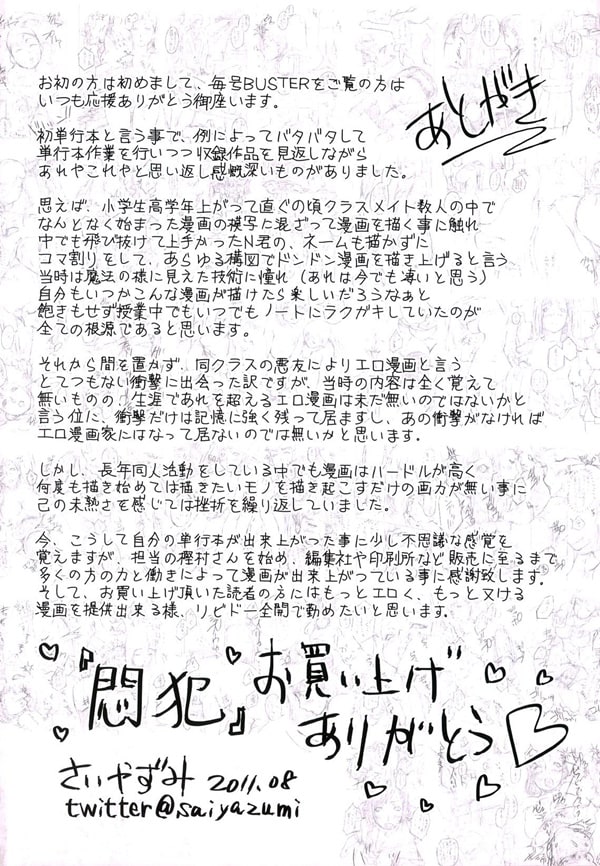 あとがき
お初の方は初めまして、毎号BUSTERをご覧の方は
いつも応援ありがとう御座います。
初単行本と言う事で、例によってバタバタして
単行本作業を行いつつ収録作品を見返しながら
あれやこれやと思い返し感慨深いものがありました。
思えば、小学生高学年上がって直ぐの頃クラスメイト数人の中で
なんとなく始まった漫画の模写に混ざって漫画を描く事に触れ
中でも飛び抜けて上手かったN君の、ネームも描かずに
コマ割りをして、あらゆる構図でドンドン漫画を描き上げると言う
当時は魔法の様に見えた技術に憧れ(あれは今でも凄いと思う)
自分もいつかこんな漫画が描けたら楽しいだろうなぁと
飽きもせず授業中でもいつでもノートにラクガキしていたのが
全ての根源であると思います。
それから間を置かず、同クラスの悪友によりエロ漫画と言う
とてつもない衝撃に出会った訳ですが、当時の内容は全く覚えて
無いものの、生涯であれを超えるエロ漫画は未だ無いのではないかと
言う位に、衝撃だけは記憶に強く残って居ますし、あの衝撃がなければ
エロ漫画家にはなって居ないのでは無いかと思います。
しかし、長年同人活動をしている中でも漫画はハードルが高く
何度も描き始めては描きたいモノを描き起こすだけの画力が無い事に
己の未熟さを感じては挫折を繰り返していました。
今、こうして自分の単行本が出来上がった事に少し不思議な感覚を
覚えますが、担当の樫村さんを始め、編集社や印刷所など販売に至るまで
多くの方の力と働きによって漫画が出来上がっている事に感謝致します。
そして、お買い上げ頂いた読者の方にはもっとエロく、もっと又ける
漫画を提供出来る様、リビドー全開で勤めたいと思います。
『悶犯』お買い上げ
ありがとう
さいやずみ 2011.08
twitter@saiyazumi